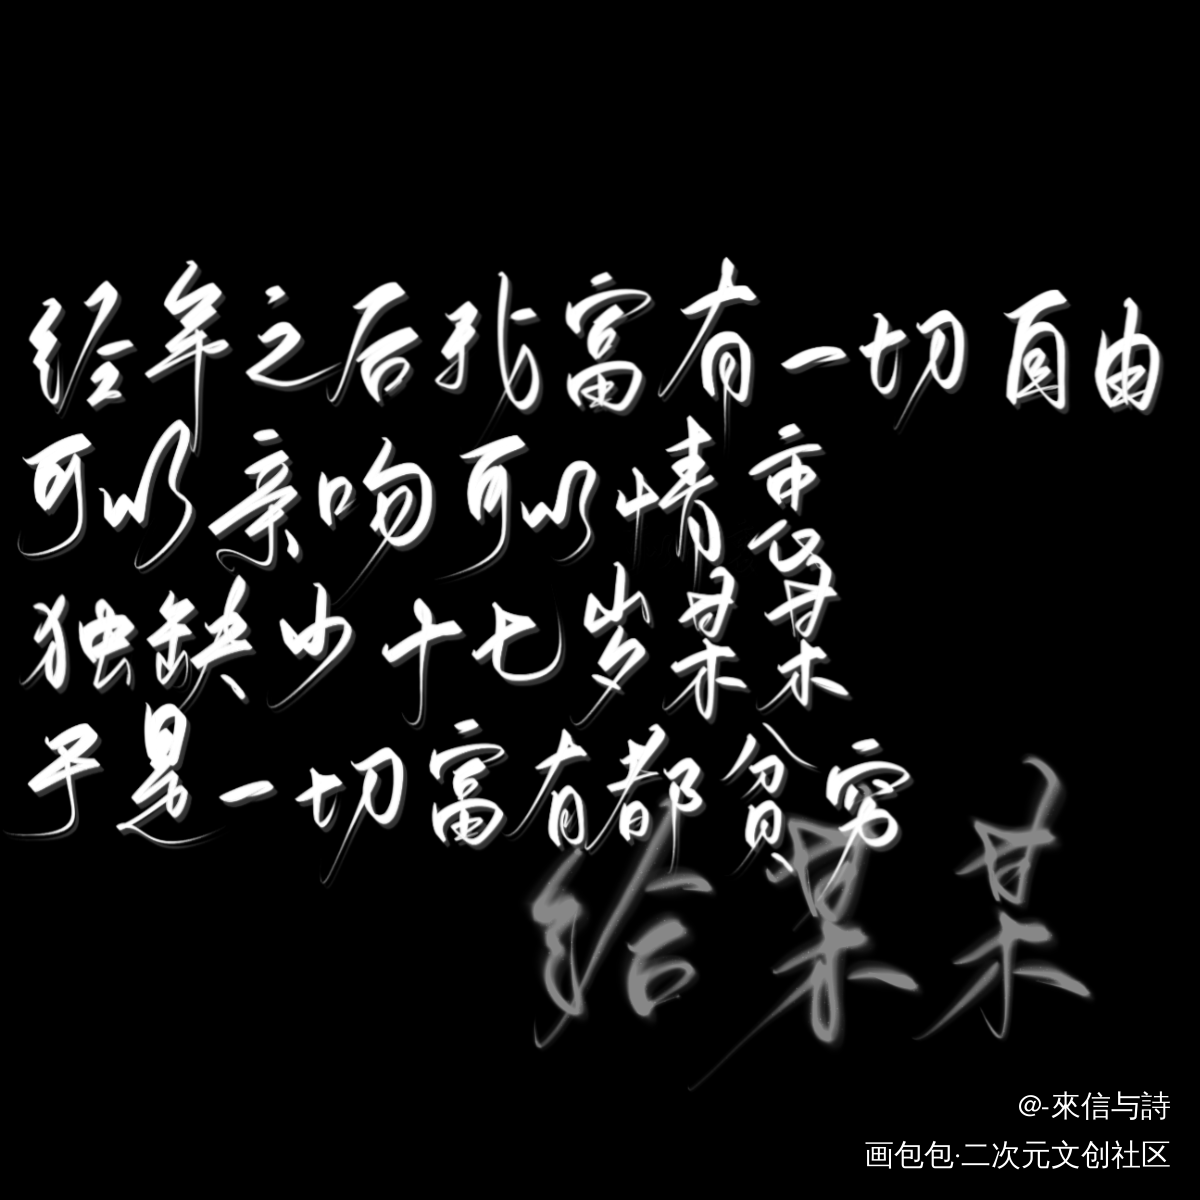 经年之后我富有一切自由
可以亲吻可以情重
独缺少十七岁某某
于是一切富有都贫穷
给某某
@-來信与詩
画包包·二次元文创社区